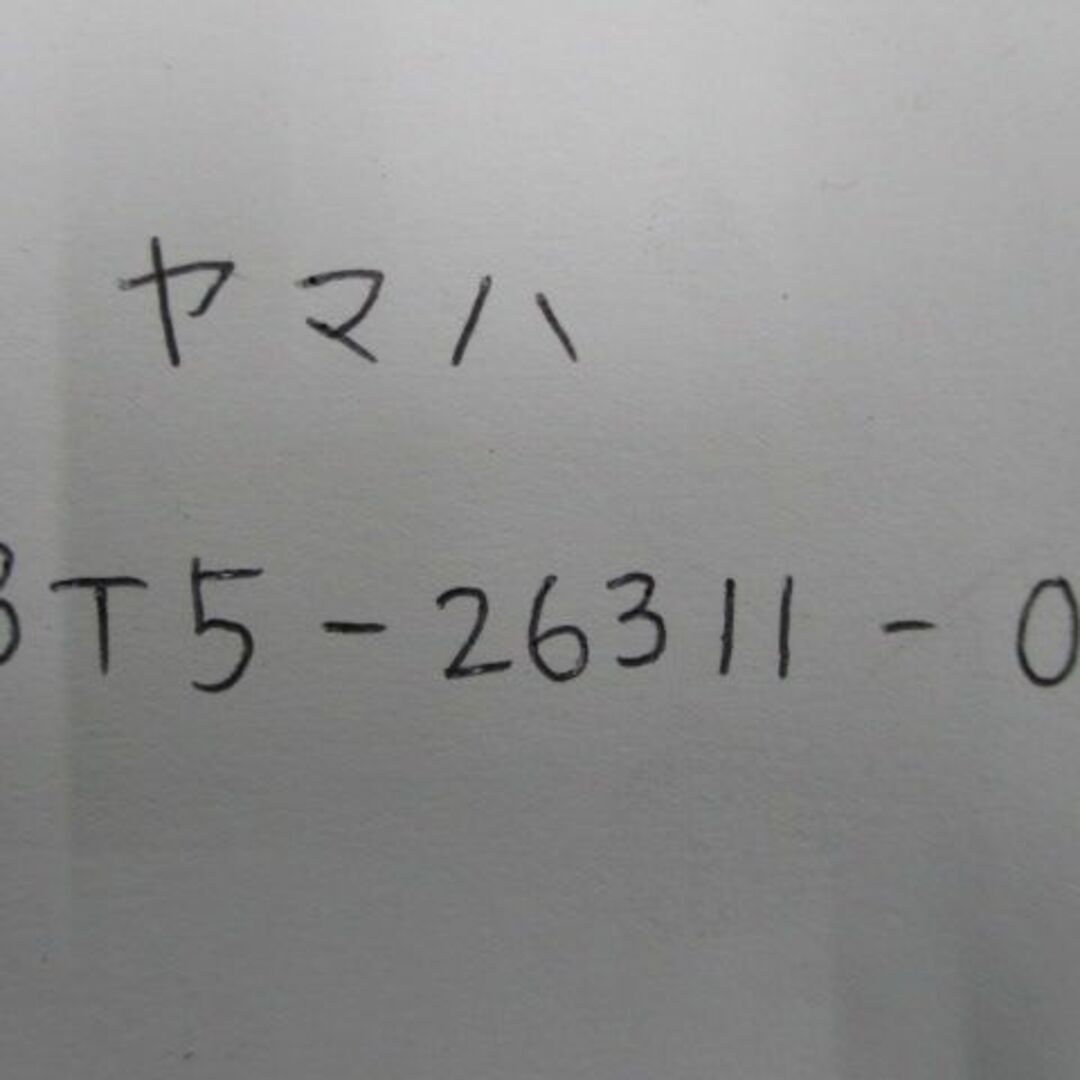 ヤマハ
3T5-26311-0